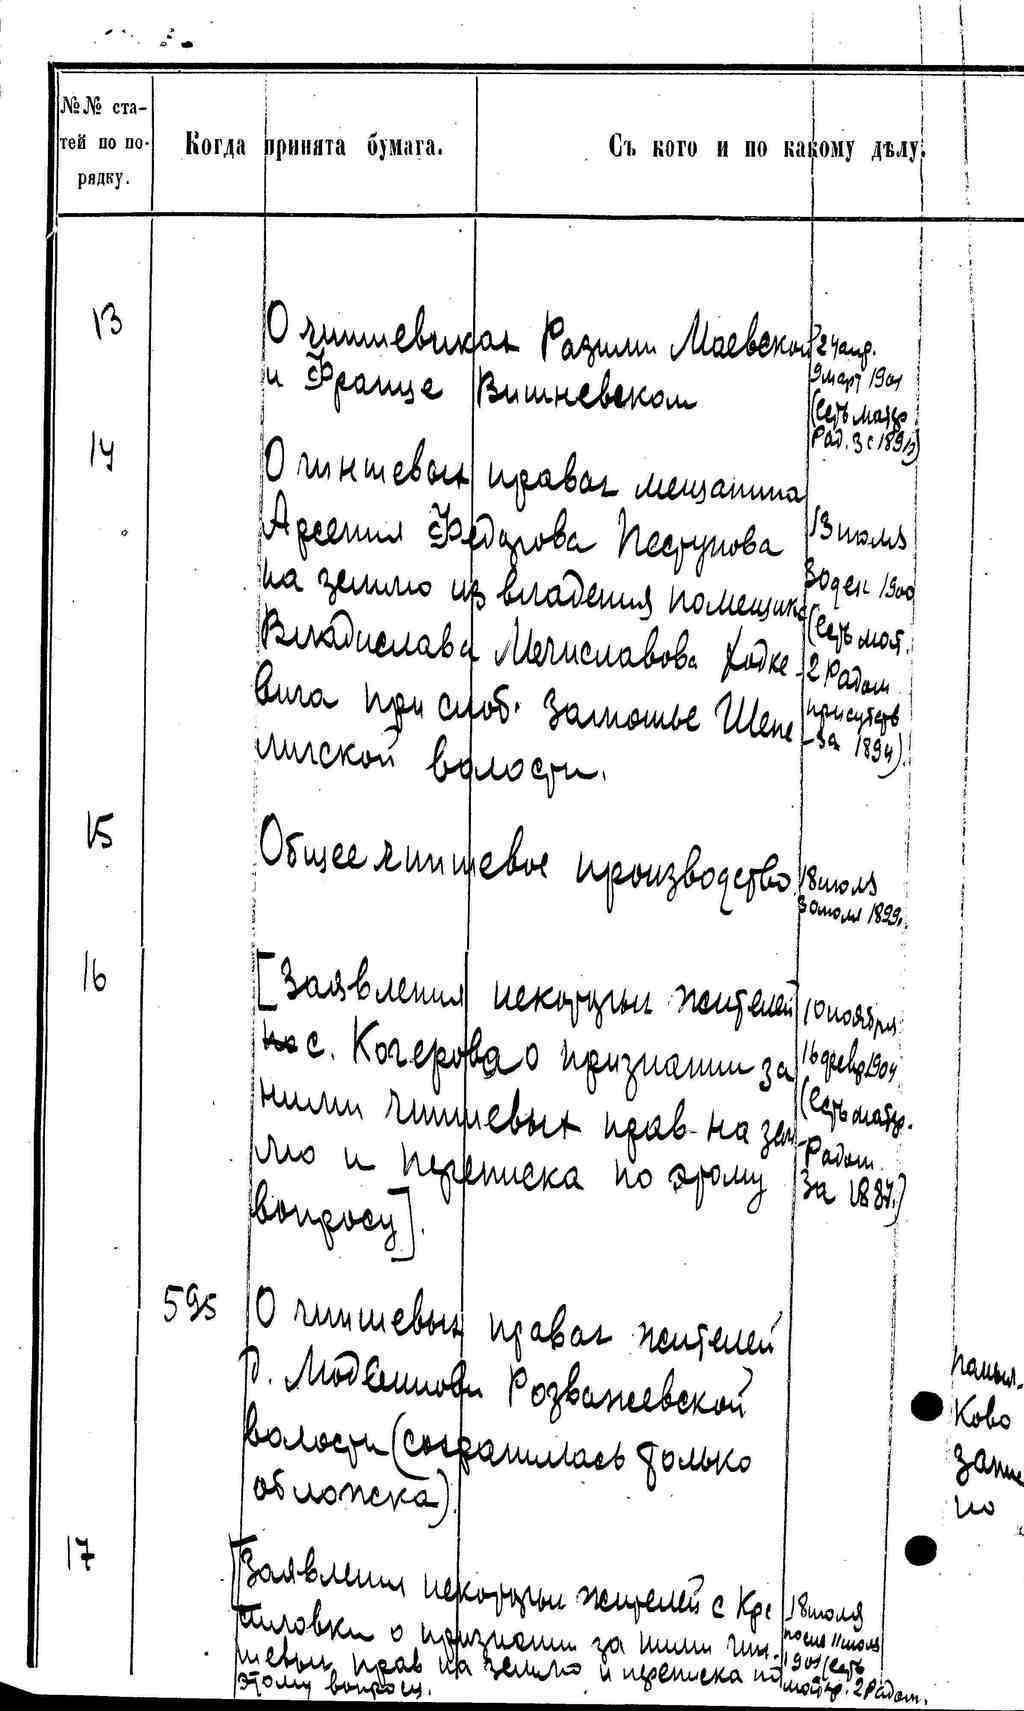 №№ ста-
тей по по-
рядку.
Когда принята бумага.
Съ кого и по какому дѣлу.
13
О чиншевиках Разими Маевском
и Франце Вишневском
24 апр.
9 март 1901
(есть матер.
Рад. за 189
14
О чиншевых правах мещанина
Арсения Федорова Пестунова
на землю из владения помещика
Владислава Мечиславова Ходке-
вича при слоб. Замошье Шепе-
личской волости.
13 июля
30 дек 1900
(есть мат.
2 Радом.
присутств
за 1894)
15
Общее чиншевое производство
18 июля
30 июля 1899.
16
[Заявления некоторых жителей
с. Кочерова о признании за
ними чиншевых прав на зем-
лю и переписка по этому
вопросу].
10 ноября
16 февр 1904
(есть матер.
Радом.
за 1887.)
595
О чиншевых правах жителей
д. Розважевской
волости (сохранилась только
обложка).
Ково
запис
но
17
[Заявления некоторых жителей с Кро
тиловки о признании за ними чин-
шевых прав на землю и переписка по
этому вопросу.
18 июля
после 11 июля
1901 (есть
матер. 2 Радом.